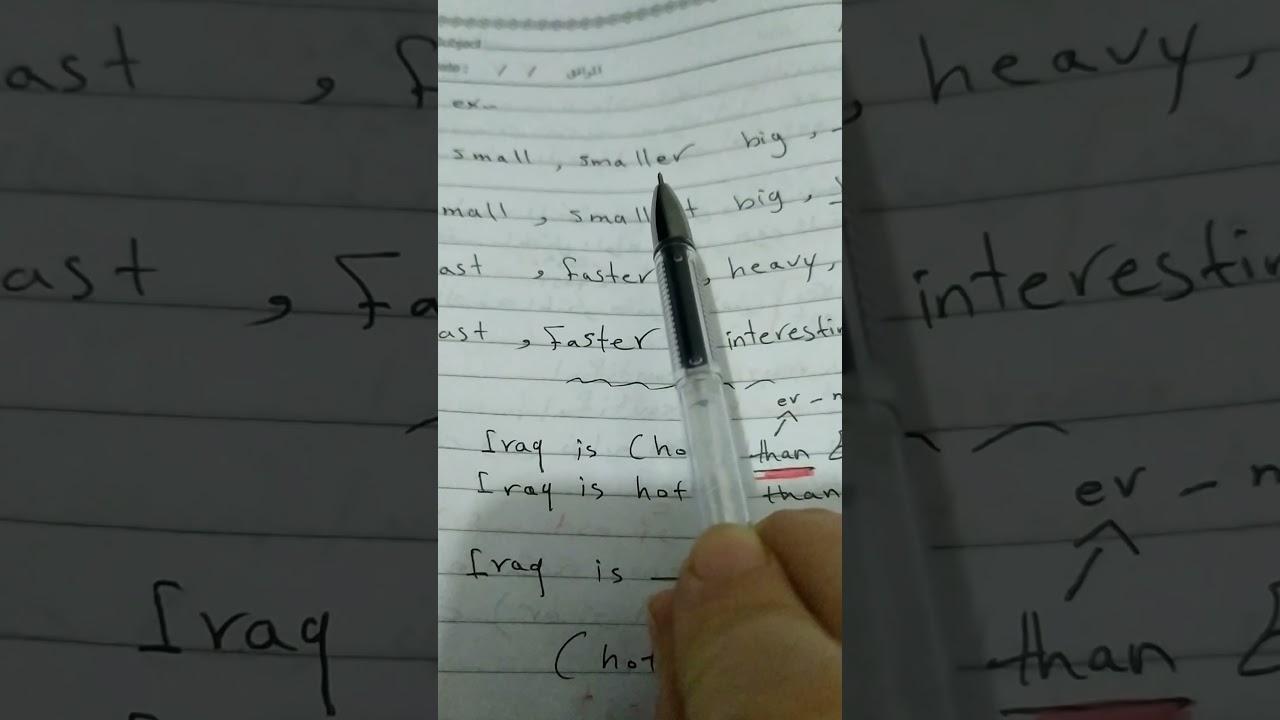 Subject
الموافق / / Date:
ex..
small , smaller big ,
mall , small t big ,
ast , faster , heavy,
ast , Faster interestin
er - n
Iraq is (ho than
Iraq is hot than
Iraq is
(hot